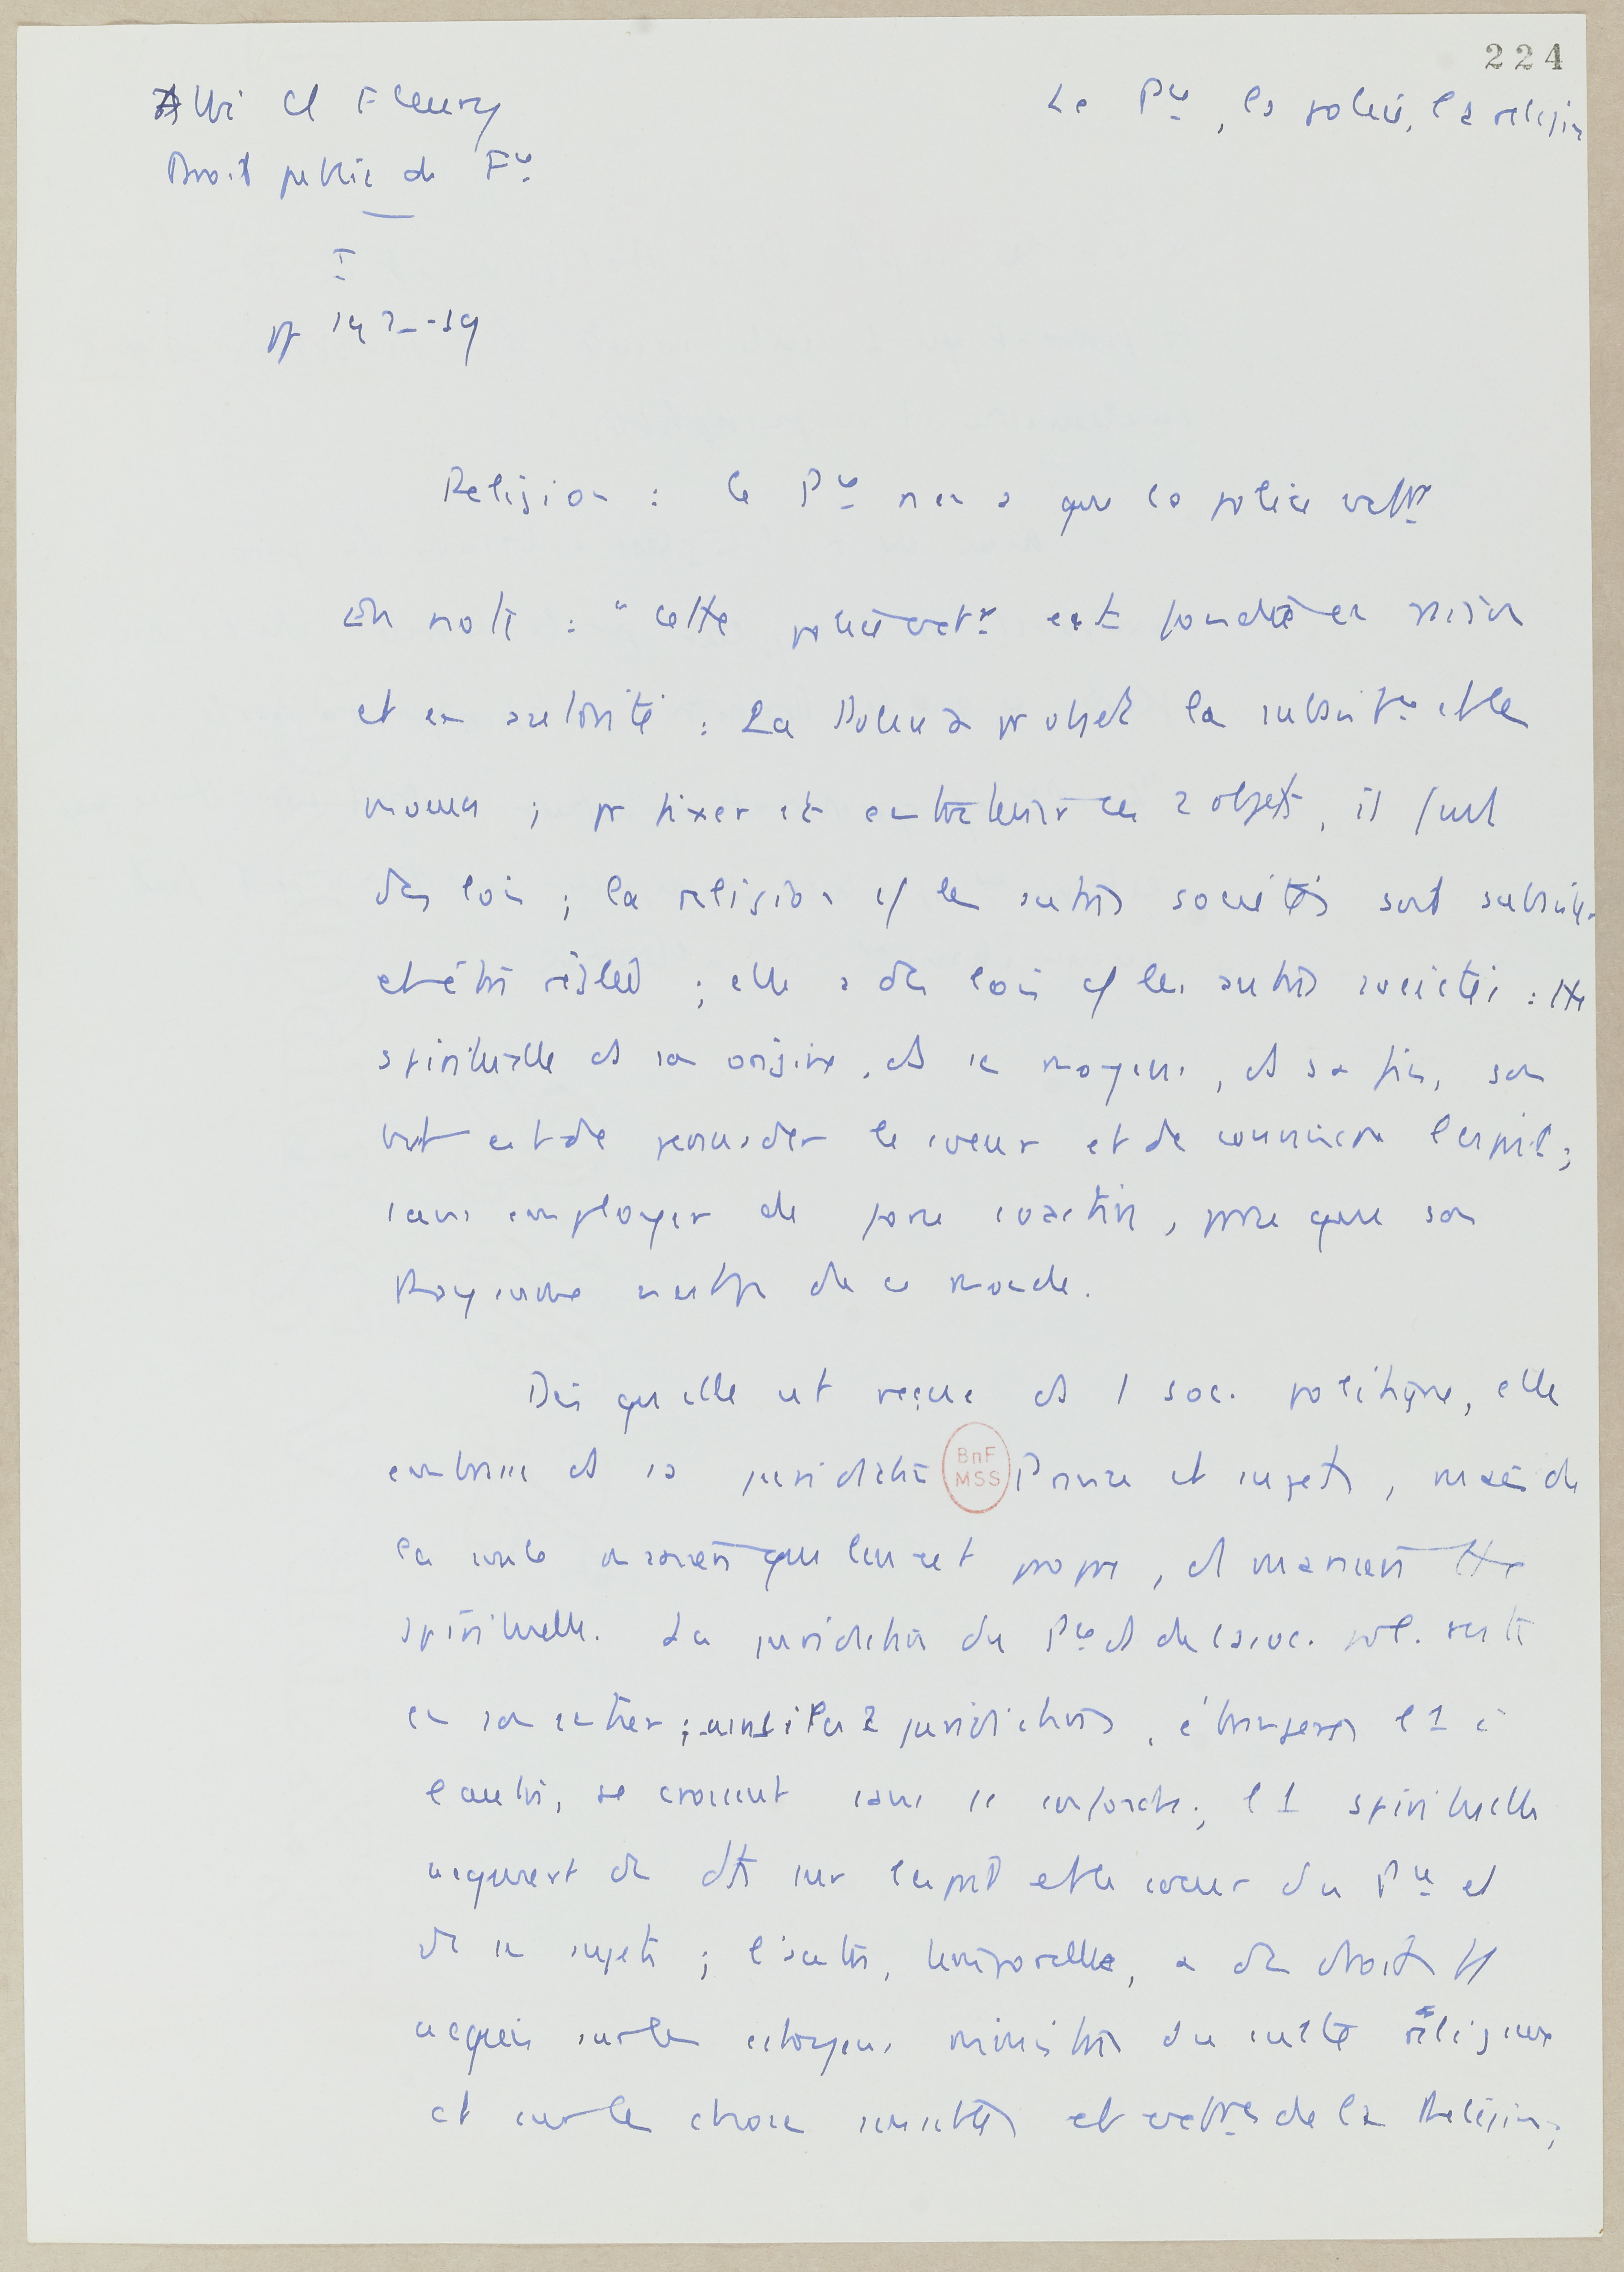 224
Abbé Cl Fleury
Le Pce, la police, la religion
Droit public de Fce
I
pp 142-
Religion : le Pce n'en a que la police extre
En note : "Cette police extre est fondée en raison
et en autorité : La Police a pr objet la subsistce et les
moeurs ; pr fixer et entretenir ces 2 objets, il faut
des lois ; la religion c/ les autres sociétés sont
et être réglée ; elle a des lois c/ les autres sociétés : tte
spirituelle ds son origine, ds ses moyens, ds sa fin, son
but est de persuader le coeur et de convaincre l'esprit ;
sans employer de force coactive, parce que son
Royaume n'est pas de ce monde.
Dès qu'elle est reçue ds 1 soc. politique, elle
embrasse ds sa juridiction Prince et sujets, mais de
la seule manière qui leur est propre, ds manière tte
spirituelle. La juridiction du Pce et de la soc. pol. reste
en son entier ; ainsi les 2 juridictions, étrangères l'1 à
l'autre, se croisent sans se confondre ; l'1 spirituelle
acquiert des dts sur l'esprit et le coeur du Pce et
de ses sujets ; l'autre, temporelle, a des droits
acquis sur les citoyens ministres du culte religieux
et sur les choses sensibles et extres de la Religion ;
BnF
MSS